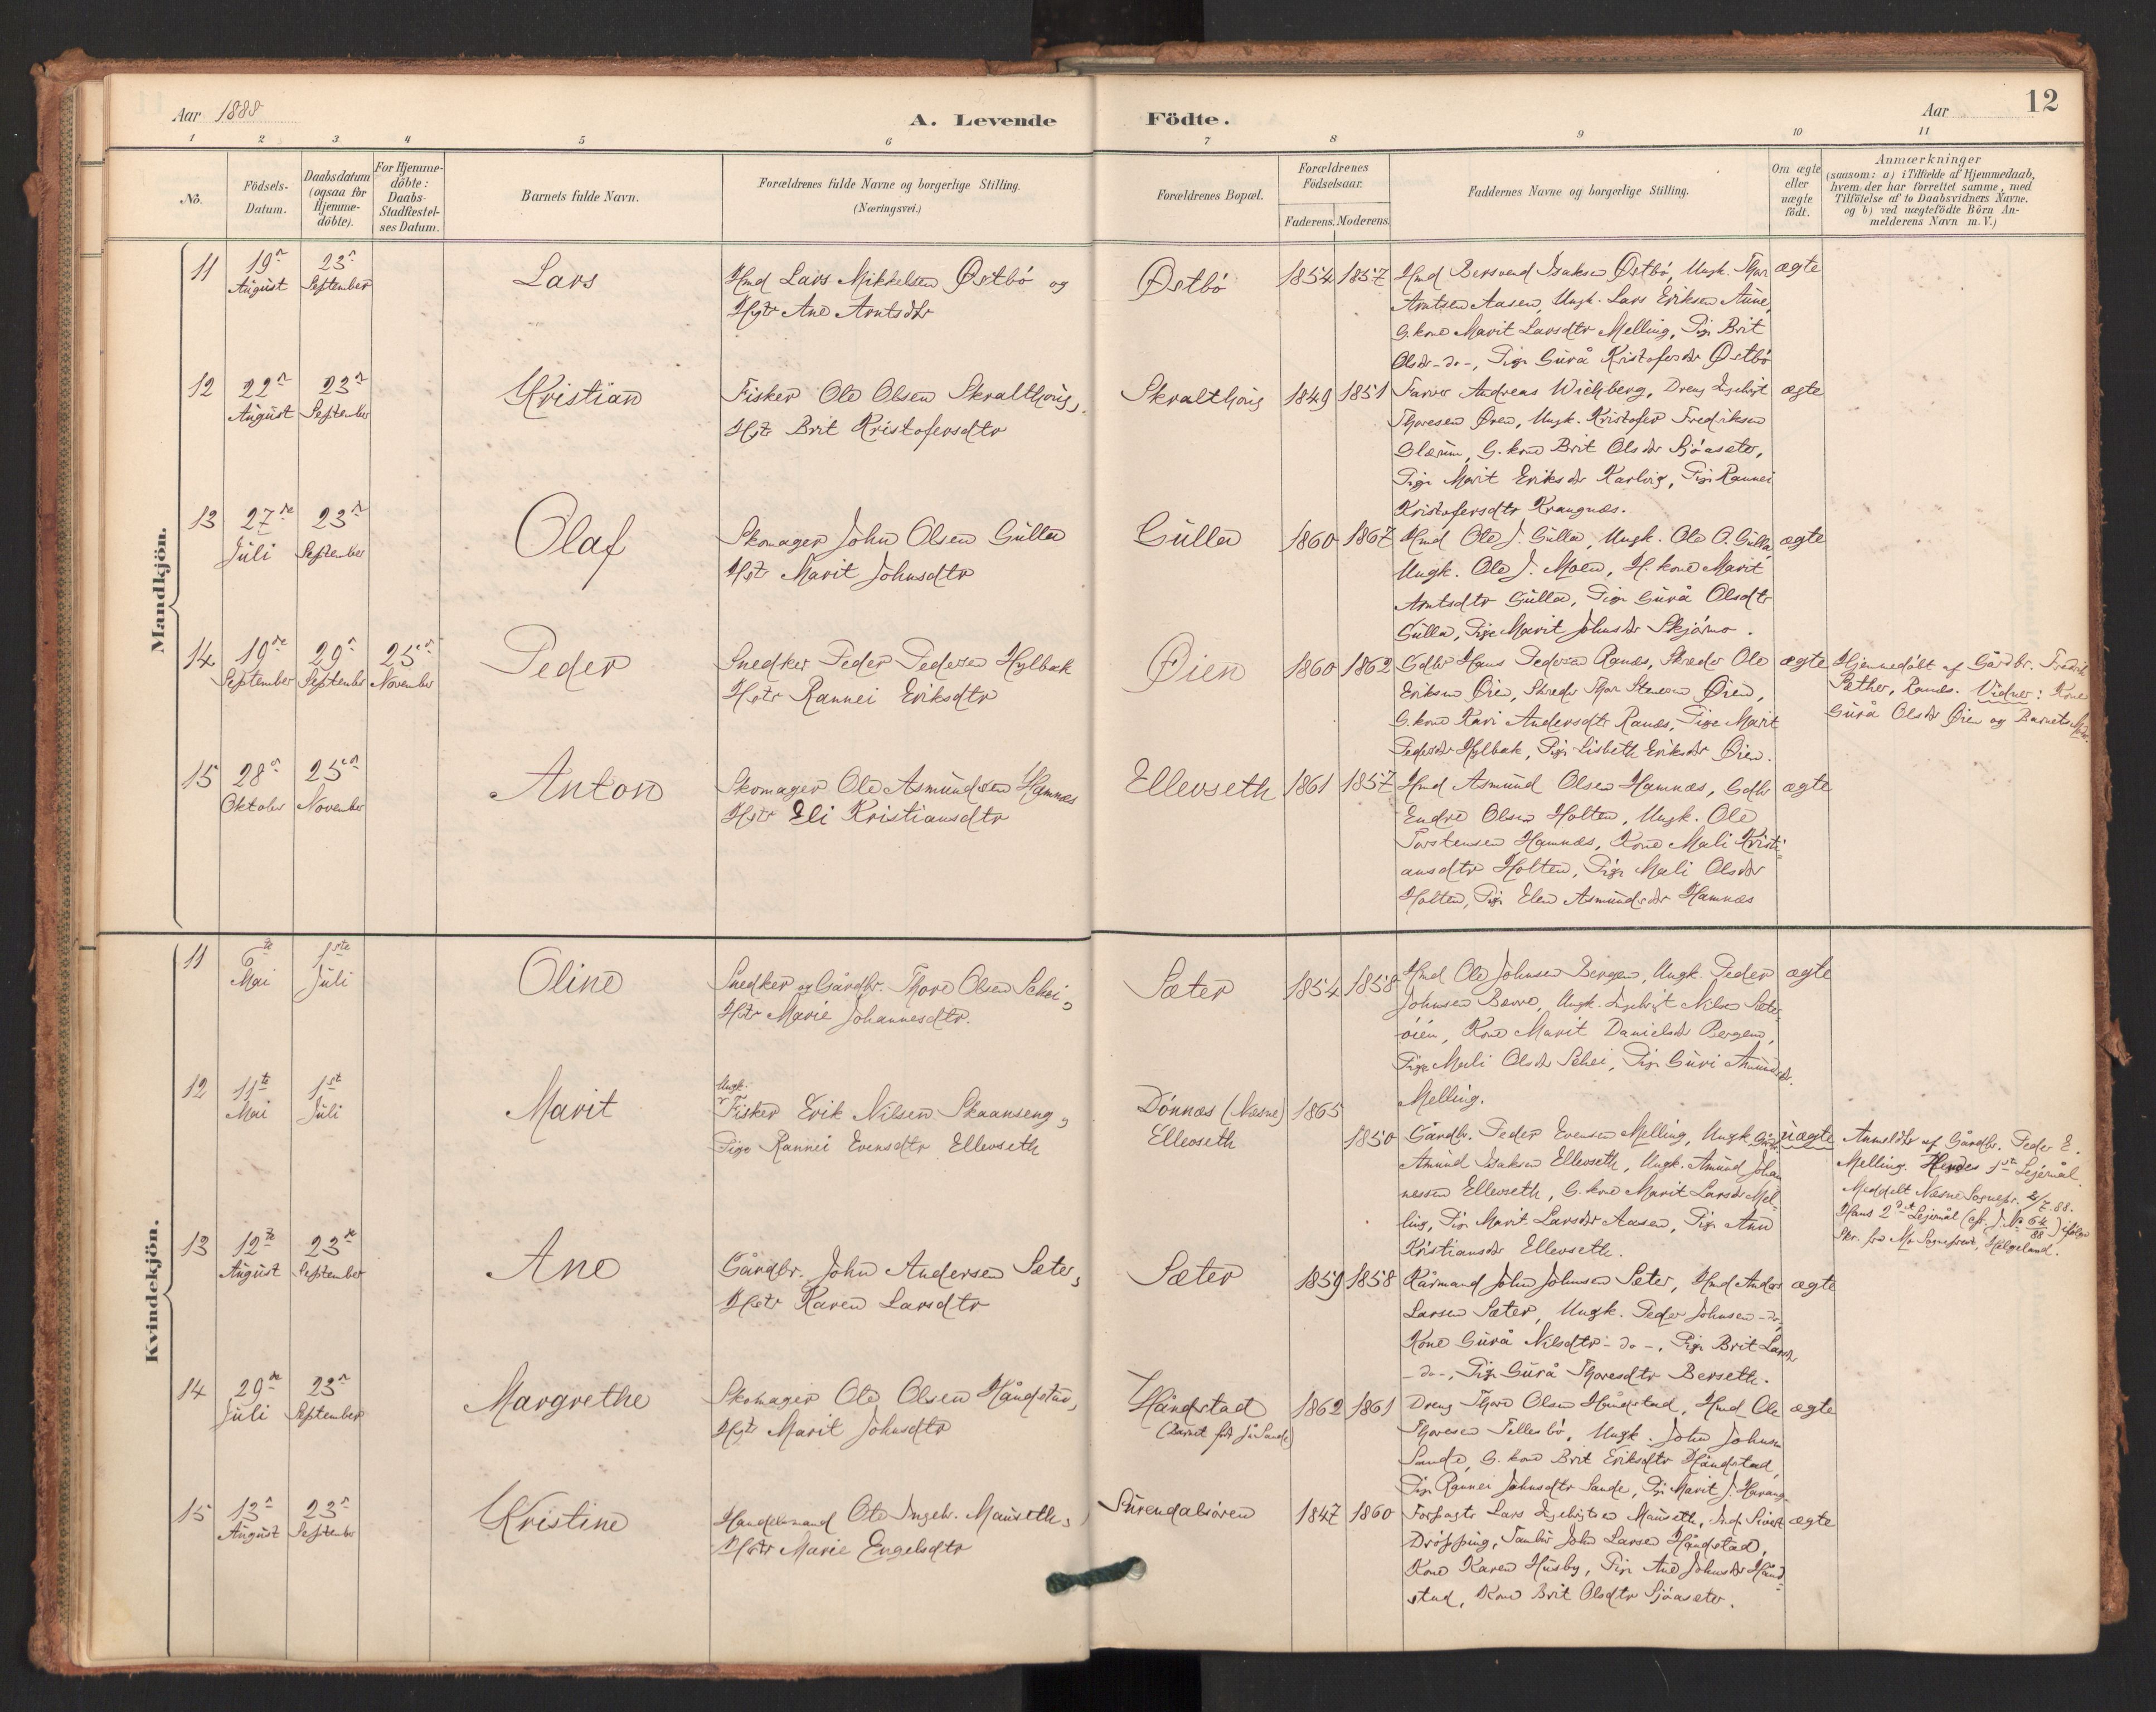 Aar 1888
A. Levende Födte.
Aar
12
1 2 3 4 5 6 7 8 9 10 11
No.
Födsels-
Datum.
Daabsdatum
(ogsaa for
Hjemme-
döbte).
For Hjemme-
döbte:
Daabs-
Stadfæstel-
ses Datum.
Barnets fulde Navn.
Forældrenes fulde Navne og borgerlige Stilling.
(Næringsvei.)
Forældrenes Bopæl.
Forældrenes
Födselsaar.
Faderens. Moderens.
Faddernes Navne og borgerlige Stilling.
Om ægte
eller
uægte
født.
Anmærkninger
(saasom: a) i Tilfælde af Hjemmedaab,
hvem der har forrettet samme, med
Tilföielse af to Daabsvidners Navne.
og b) ved uægtefödte Börn An-
melderens Navn m. V.)
Mandkjön.
11
19n August
23n September
Lars
Hmd Lars Mikkelsen Østbö og
Hstr Ane Arntsdtr
Østbö
1854 1857
Hmd Bersvend Isaksen Østbö, Ungk. Thor
Arntsen Aasen, Ungk. Lars Eriksen Aune,
G.kone Marit Larsdtr Melling, Pige Brit
Olsdr -do-, Pige Gurå Kristofersdr Østbö
ægte
12
22n August
23n September
Kristian
Fisker Ole Olsen Skralthaug,
Hstr Brit Kristofersdtr
Skralthaug
1849 1851
Farver Andreas Wichberg, Dreng Ingebrigt
Thoresen Øren, Ungk. Kristofer Fredriksen
Glærum, G.kone Brit Olsdr Sjöasæter,
Pige Marit Eriksdr Karlvig, Pige Rannei
Kristofersdtr Krangnæs.
ægte
13
27de Juli
23n September
Olaf
Skomager John Olsen Gulla
Hstr Marit Johnsdtr
Gulla
1860 1867
Hmd Ole J. Gulla, Ungk. Ole O. Gulla,
Ungk. Ole J. Moen, H.kone Marit
Arntsdtr Gulla, Pige Gurå Olsdtr
Gulla, Pige Marit Johnsdr Skjörmo.
ægte
14
19de September
29n September
25n November
Peder
Snedker Peder Pedersen Hylbak
Hstr Rannei Eriksdtr
Øien
1860 1862
Gdbr Hans Pedersen Ranæs, Skræder Ole
Eriksen Øien, Skredr Thor Stenersen Øien,
G.kone Kari Andersdtr Ranæs, Pige Marit
Pedersdr Hylbak, Pige Lisbeth Eriksdr Øien.
ægte
Hjemmedöbt af Gårdbr. Fredrik
Pether, Ranæs. Vidner: Kone
Gurå Olsdr Øien og Barnets Moder.
15
28n Oktober
25n November
Anton
Skomager Ole Asmundsen Hamnæs
Hstr Eli Kristiansdtr
Ellevseth
1861 1857
Hmd Asmund Olsen Hamnæs, Gdbr
Endre Olsen Holten, Ungk. Ole
Torstensen Hamnæs, Kone Mali Kristi-
ansdtr Holten, Pige Mali Olsdtr
Holten, Pige Elen Asmundsdr Hamnæs
ægte
Kvindekjön.
11
6te Mai
1ste Juli
Oline
Snedker og Gårdbr. Thore Olsen Schei,
Hstr Marie Johannesdtr.
Sæter
1854 1858
Hmd Ole Johnsen Bergen, Ungk. Peder
Johnsen Bævre, Ungk. Ingebrigt Nilsen Sæter-
öien, Kone Marit Danielsdr Bergen,
Pige Mali Olsdr Schei, Pige Guri Amundsdr.
Melling.
ægte
12
11te Mai
1ste Juli
Marit
Ungk.
Fisker Erik Nilsen Skaanseng,
Pige Rannei Evensdtr Ellevseth
Dönnæs (Næsne)
Ellevseth
1865
1850
Gårdbr. Peder Evensen Melling, Ungk Gårdb.
Amund Isaksen Ellevseth, Ungk. Amund Johan
nessen Ellevseth, G.kone Marit Larsdr Mel-
ling, Pige Marit Larsdtr Aasen, Pige Ane
Kristiansdr Ellevseth.
uægte
Anmeldtr af Gårdbr. Peder E.
Melling. Hendes 1ste Lejermål.
Meddelt Næsne Sognepr. 2/7 88.
Hans 2det Lejermål (cfr. J.No 64/88) ifølge
Skr. fra Mo Sogneprest, Helgeland.
13
12te August
23de September
Ane
Gårdbr. John Andersen Sæter,
Hstr Karen Larsdtr
Sæter
1859 1858
Kårmand John Johnsen Sæter, Hmd Anders
Larsen Sæter, Ungk. Peder Johnsen -do-,
Kone Gurå Nilsdtr -do-, Pige Brit Larsdr
-do-, Pige Gurå Thoresdtr Berseth.
ægte
14
29de Juli
23n September
Margrethe
Skomager Ole Olsen Håndstad,
Hstr Marit Johnsdtr
Håndstad
(Barnet født på Sande)
1862 1861
Dreng Thore Olsen Håndstad, Hmd Ole
Thoresen Tellesbö, Ungk. John Johnsen
Sande, G.kone Brit Eriksdtr Håndstad,
Pige Rannei Johnsdtr Sande, Pige Marit J. Harang
ægte
15
13n August
23n September
Kristine
Handelsmand Ole Ingebr. Mauseth,
Hstr Marie Engelsdtr
Surendalsören
1847 1860
Forpagter Lars Ingebrigtsen Mauseth, Sivert
Dröpping, Tambr John Larsen Håndstad,
Kone Karen Husby, Pige Ane Johnsdr Hånd-
stad, Kone Brit Olsdtr Sjöasæter.
ægte